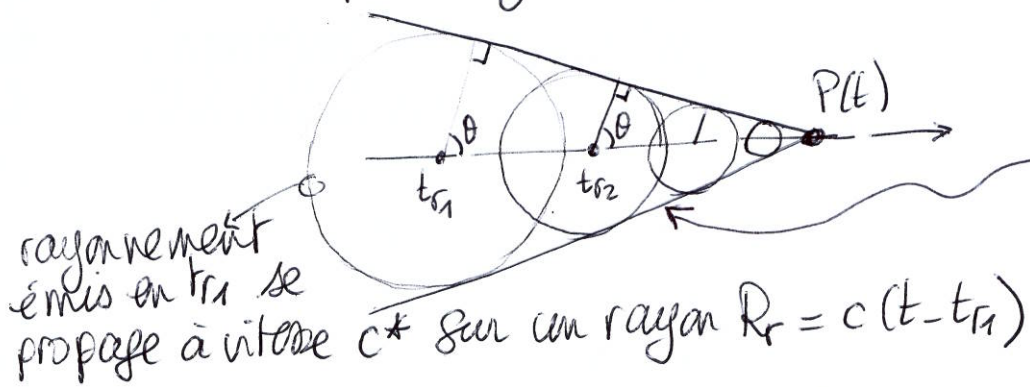 P(t)
θ
θ
t_{r_1}
t_{r_2}
rayonnement
émis en t_{r_1} se
propage à vitesse c* sur un rayon R_r = c(t-t_{r_1})